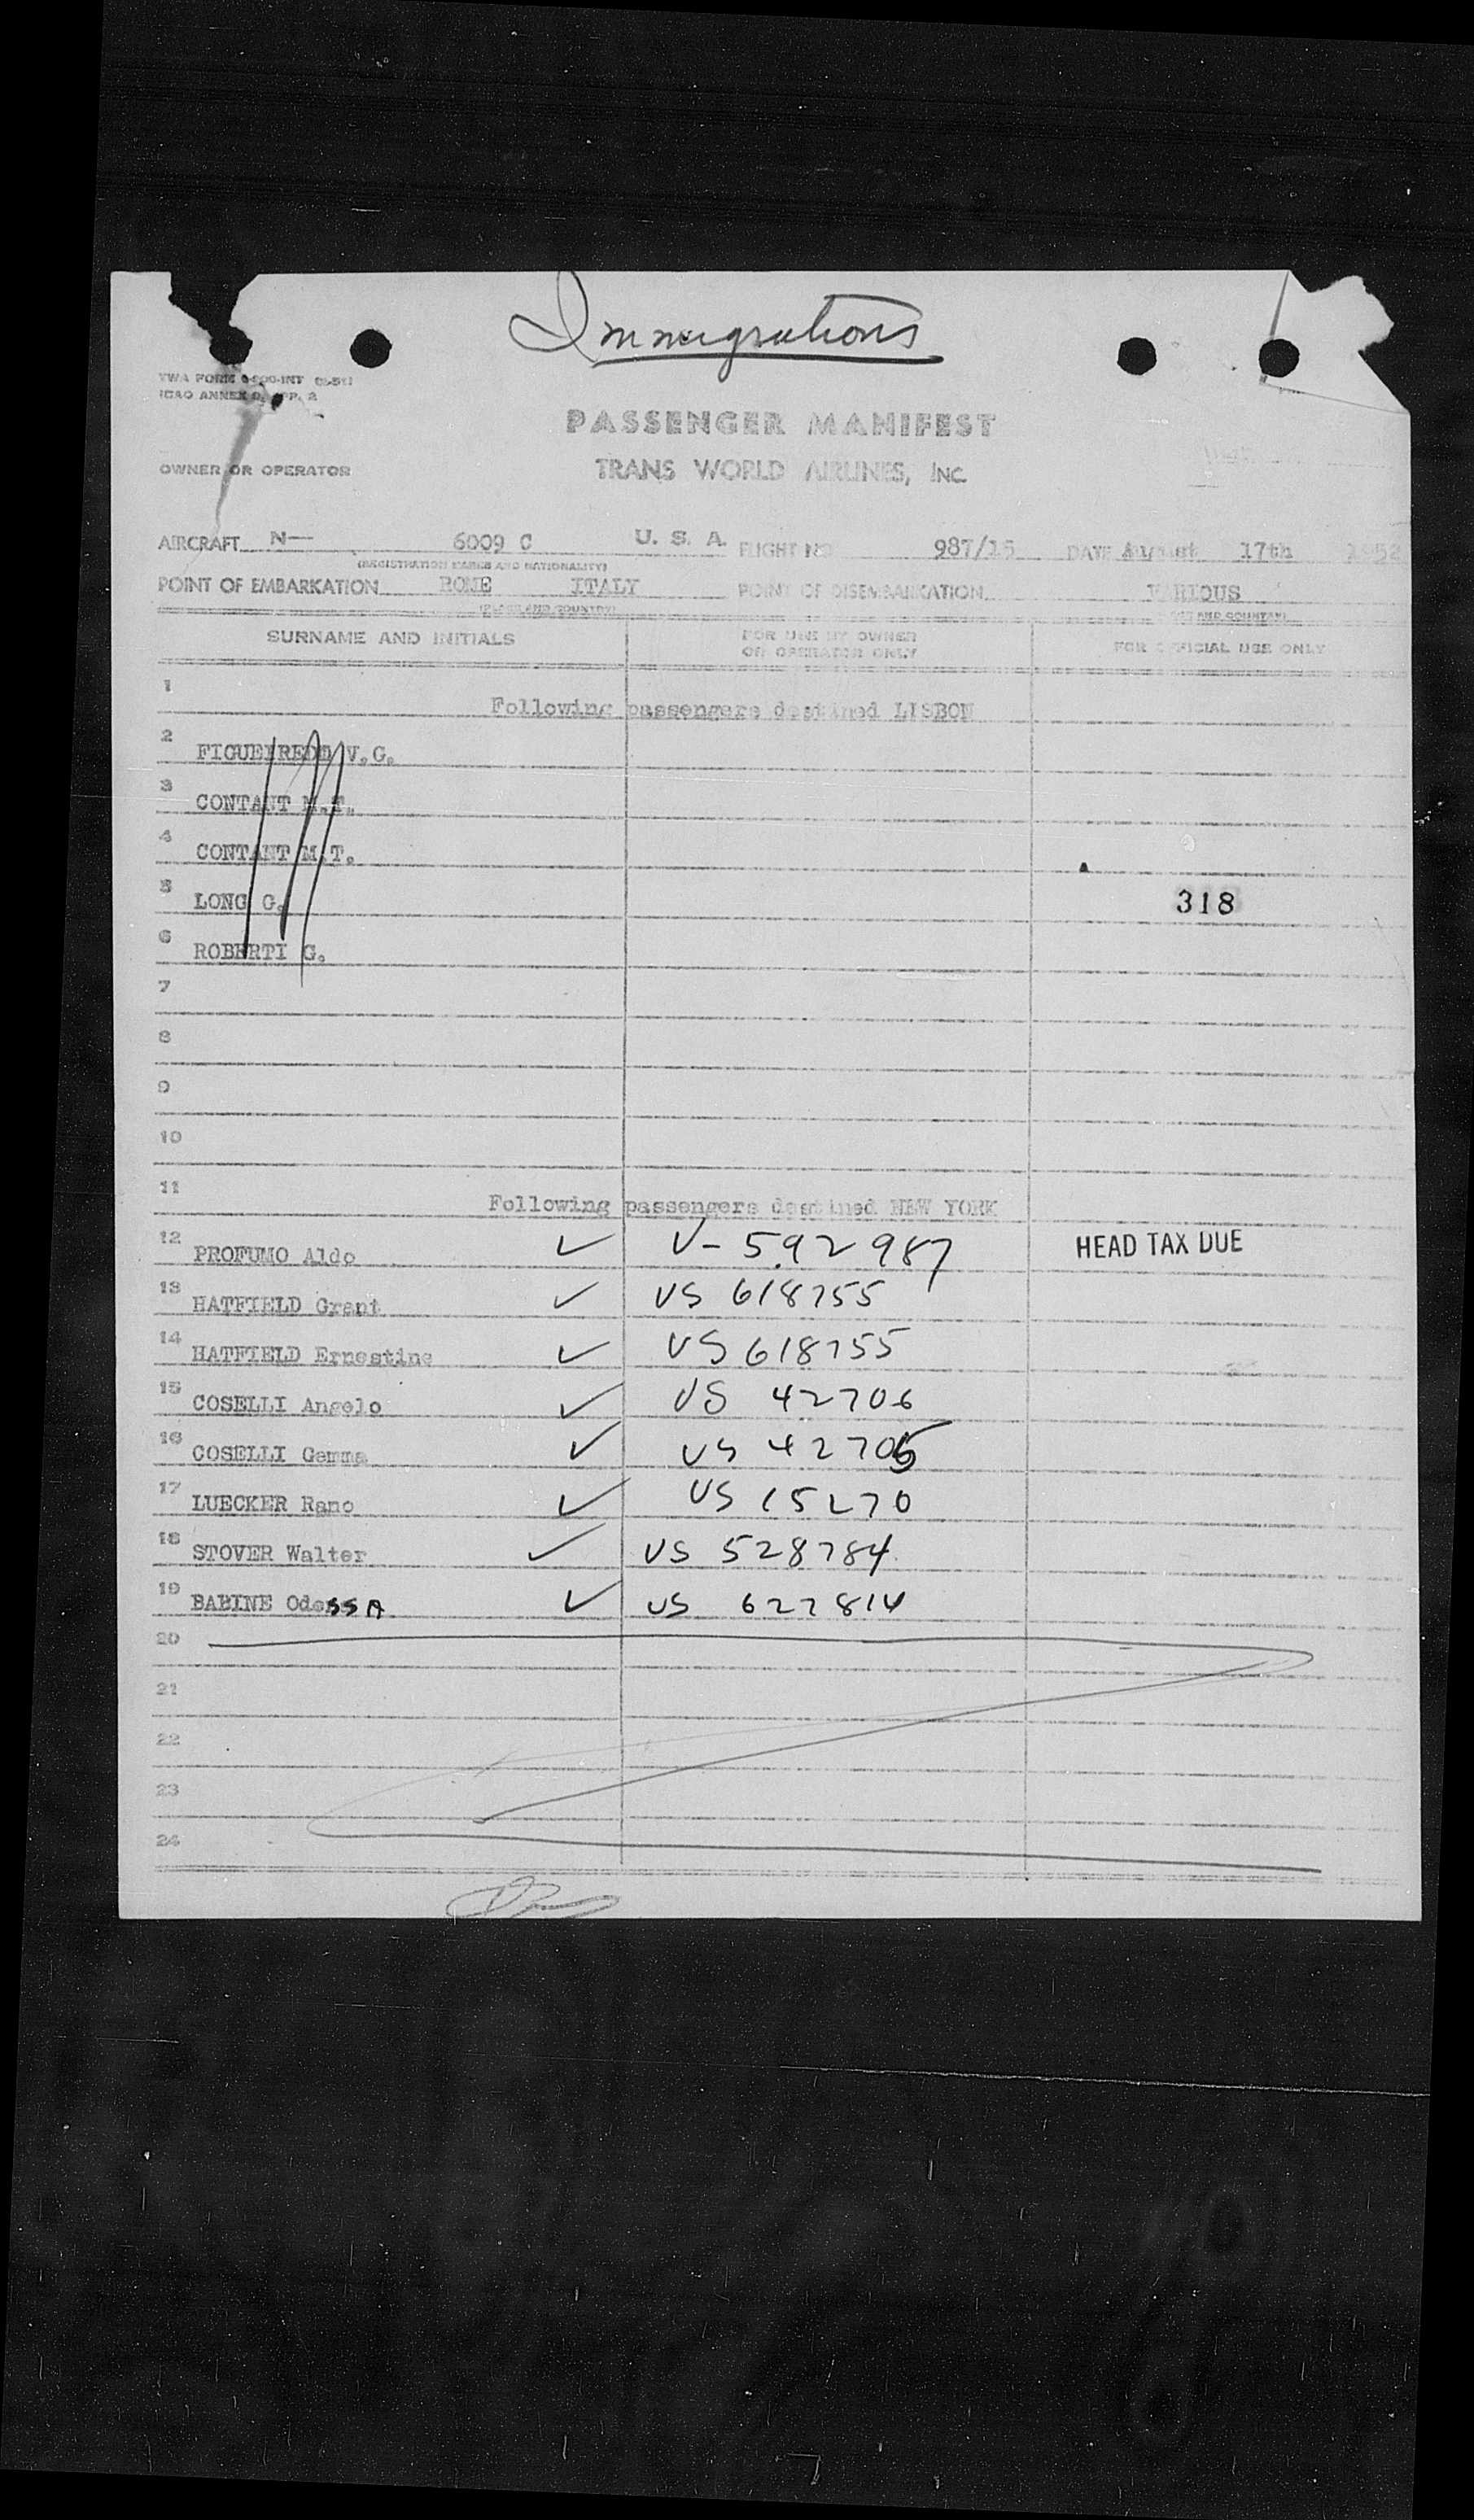 Immigrations
TWA FORM
ICAO ANNEX 9, APP. 2
PASSENGER MANIFEST
OWNER OR OPERATOR TRANS WORLD AIRLINES, INC
AIRCRAFT N— 6009 C U. S. A. FLIGHT NO 987/15 DATE August 17th 1952
(REGISTRATION MARKS AND NATIONALITY)
POINT OF EMBARKATION ROME ITALY POINT OF DISEMBARKATION VARIOUS
(PLACE AND COUNTRY) AND COUNTRY)
SURNAME AND INITIALS FOR USE BY OWNER OR OPERATOR ONLY FOR OFFICIAL USE ONLY
1 Following passengers destined LISBON
2 FIGUEIREDO V.G.
3 CONTANT M.T.
4 CONTANT M.T.
5 LONG G. 318
6 ROBERTI G.
7
8
9
10
11 Following passengers destined NEW YORK
12 PROFUMO Aldo ✓ V- 592987 HEAD TAX DUE
13 HATFIELD Grant ✓ US 618755
14 HATFIELD Ernestine ✓ US 618755
15 COSELLI Angelo ✓ US 42706
16 COSELLI Gemma ✓ US 42705
17 LUECKER Rano ✓ US 15270
18 STOVER Walter ✓ US 528784
19 BABINE OdeSSA ✓ US 627814
20
21
22
23
24